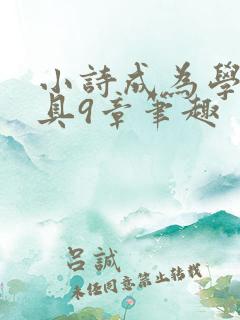 小詩成為學
具9章筆趣
呂誠
未任同意禁止轉載